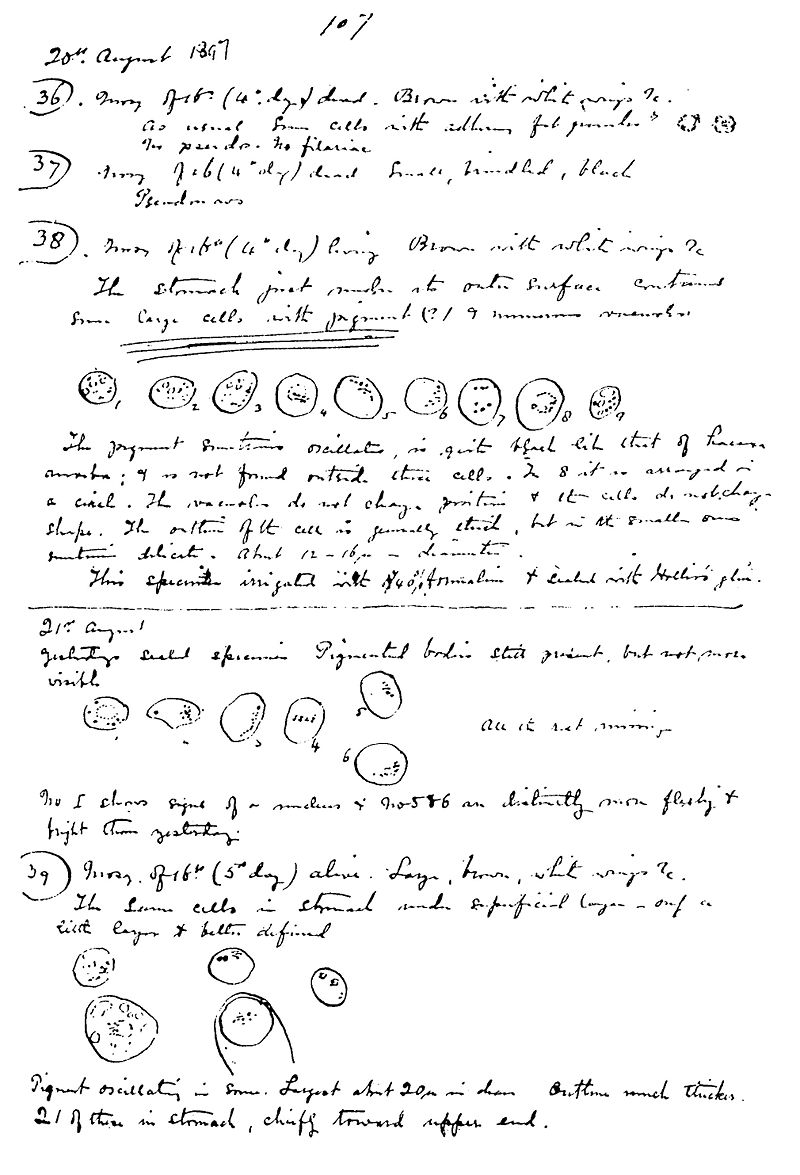 107
20th August 1897
36. Mosq of 16th (4th day) dead. Brown with white wings &c.
As usual some cells with adhering fat granules?
No pseudo. No filariae
37 Mosq of 16 (4th day) dead Small, brindled, black
Pseudonavs
38. Mosq of 16th (4th day) living Brown with white wings &c
The stomach just under its outer surface contains
some large cells with pigment (?) & numerous vacuoles
1 2 3 4 5 6 7 8 9
The pigment sometimes oscillates, is quite black like that of haem
amoeba; & is not found outside these cells. In 8 it is arranged in
a circle. The vacuoles do not change position & the cells do not change
shape. The outline of the cell is generally thick, but in the smaller ones
sometimes delicate. About 12-16µ in diameter.
This specimen irrigated with 40% formalin & sealed with Hollis's glue.
21st August
Yesterdays sealed specimen Pigmented bodies still present, but not more
visible
3 4 5
6 All the rest missing
No 1 shows signs of a nucleus & No 5 & 6 are distinctly more fleshy &
bright than yesterday.
39 Mosq. of 16th (5th day) alive. Large, brown, white wings &c.
The same cells in stomach under superficial layer – only a
little larger & better defined
Pigment oscillating in some. Largest about 20µ in diam Outline much thicker.
21 of these in stomach, chiefly toward upper end.